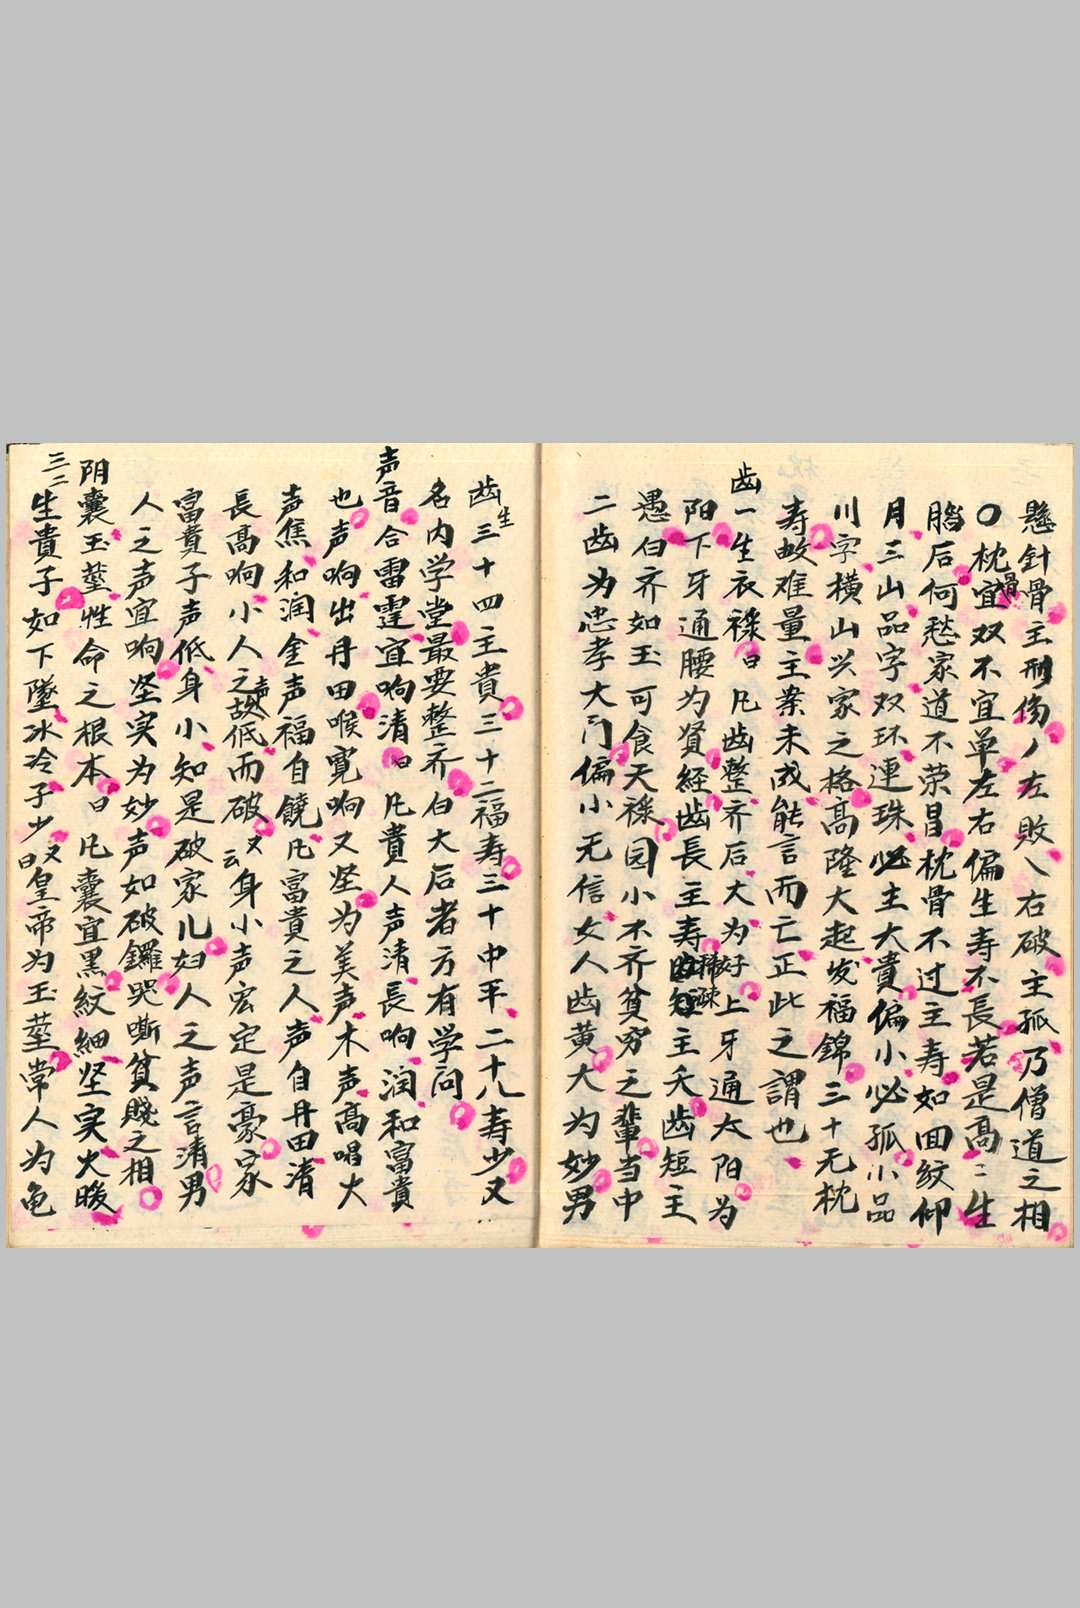 懸針骨主刑伤丿左敗乀右破主孤乃僧道之相
〇枕骨宜双不宜单左右偏生寿不長若是高二生
腦后何愁家道不荣昌枕骨不过主寿如回紋仰
月三山品字双环連珠必主大貴偏小必孤小品
川字横山兴家之格高隆大起发福錦三十无枕
寿数难量主業未成能言而亡正此之謂也
齿一生衣禄曰凡齿整齐后大为好上牙通太阳为
阳下牙通腰为贤経齿長主寿稀疎主夭齿短主
愚白齐如玉可食天禄园小不齐貧穷之輩当中
二齿为忠孝大门偏小无信女人齿黄大为妙男
齿生三十四主貴三十二福寿三十中平二十八寿少又
名内学堂最要整齐白大后者方有学问
声音合雷霆宜响清曰凡貴人声清長响润和富貴
也声响出丹田喉寬响又坚为美声木声高唱火
声焦和润金声福自饒凡富貴之人声自丹田清
長高响小人之声故低而破又云身小声宏定是豪家
富貴子声低身小知是破家儿妇人之声言清男
人之声宜响坚实为妙声如破鑼哭嘶貧賤之相
阴囊玉莖性命之根本曰凡囊宜黑紋細坚实火暖
三二生貴子如下墜冰冷子少又曰皇帝为玉莖常人为龟